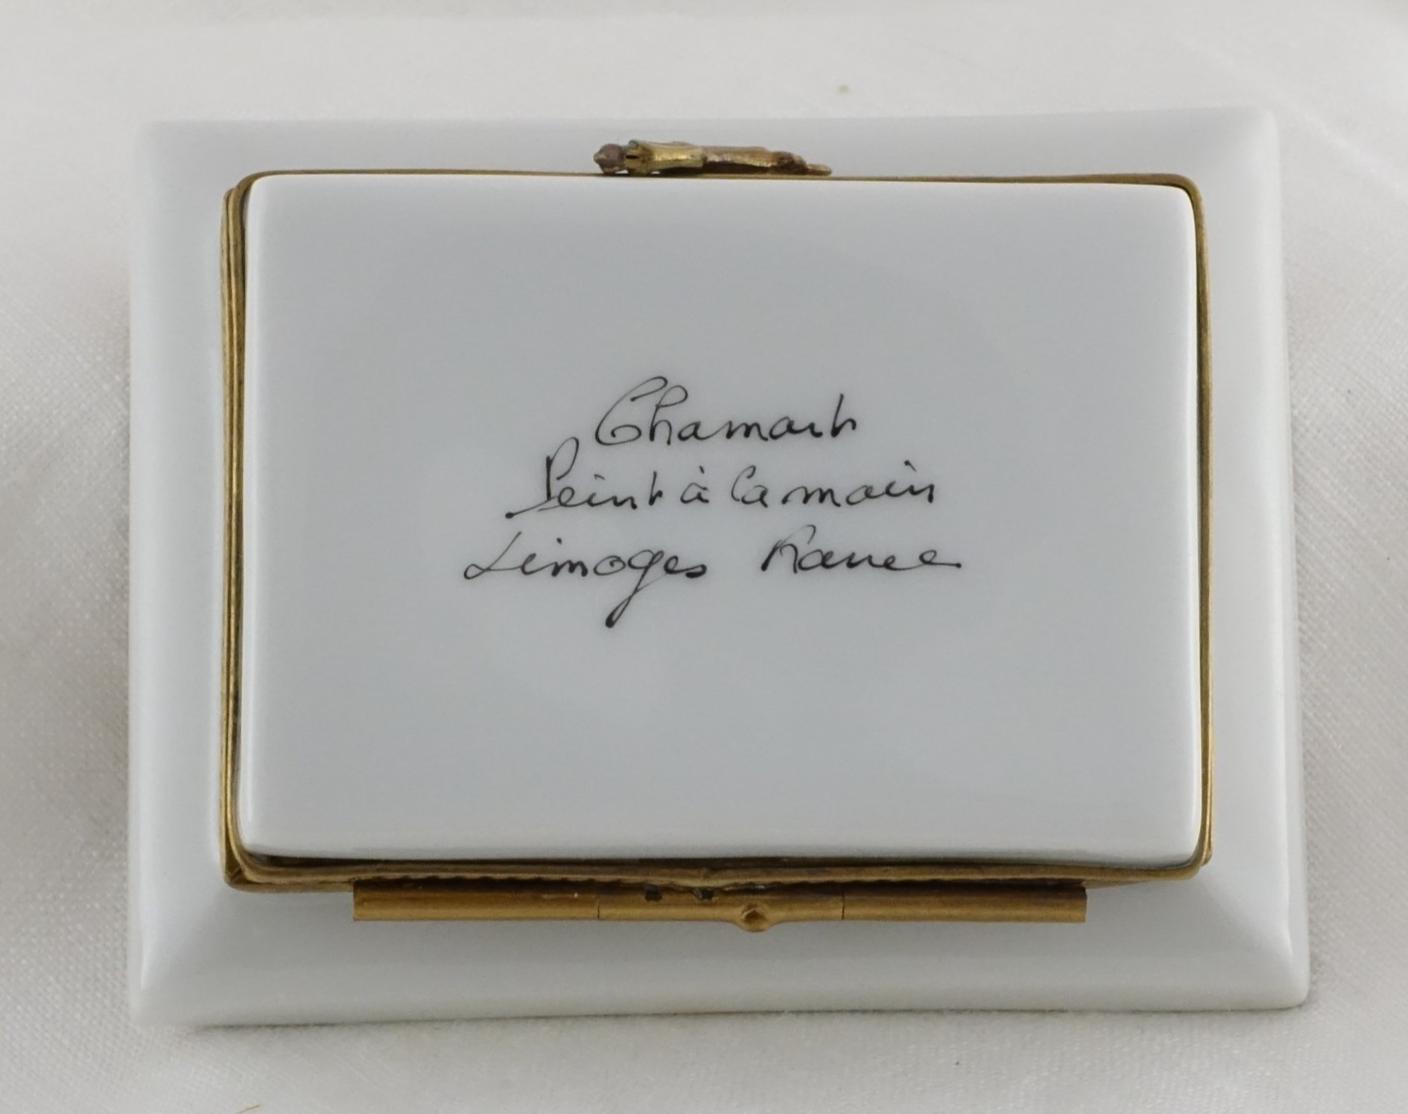 Chamart
Peint à la main
Limoges France